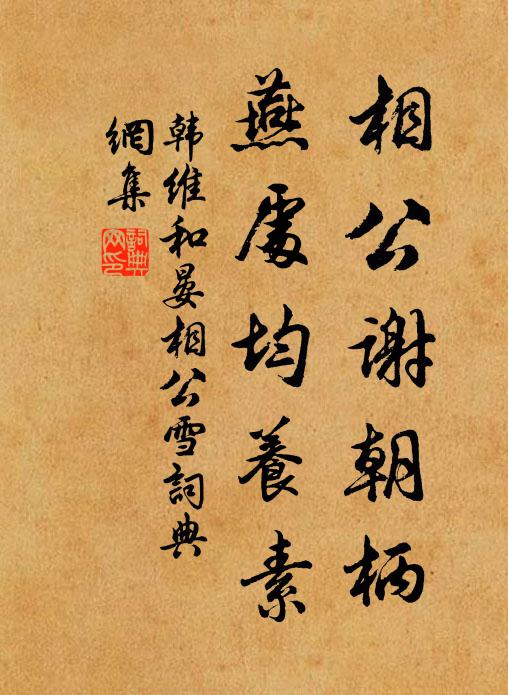 相公謝朝柄
燕處均養素
韩维和晏相公雪詞典
網集
詞典
网印